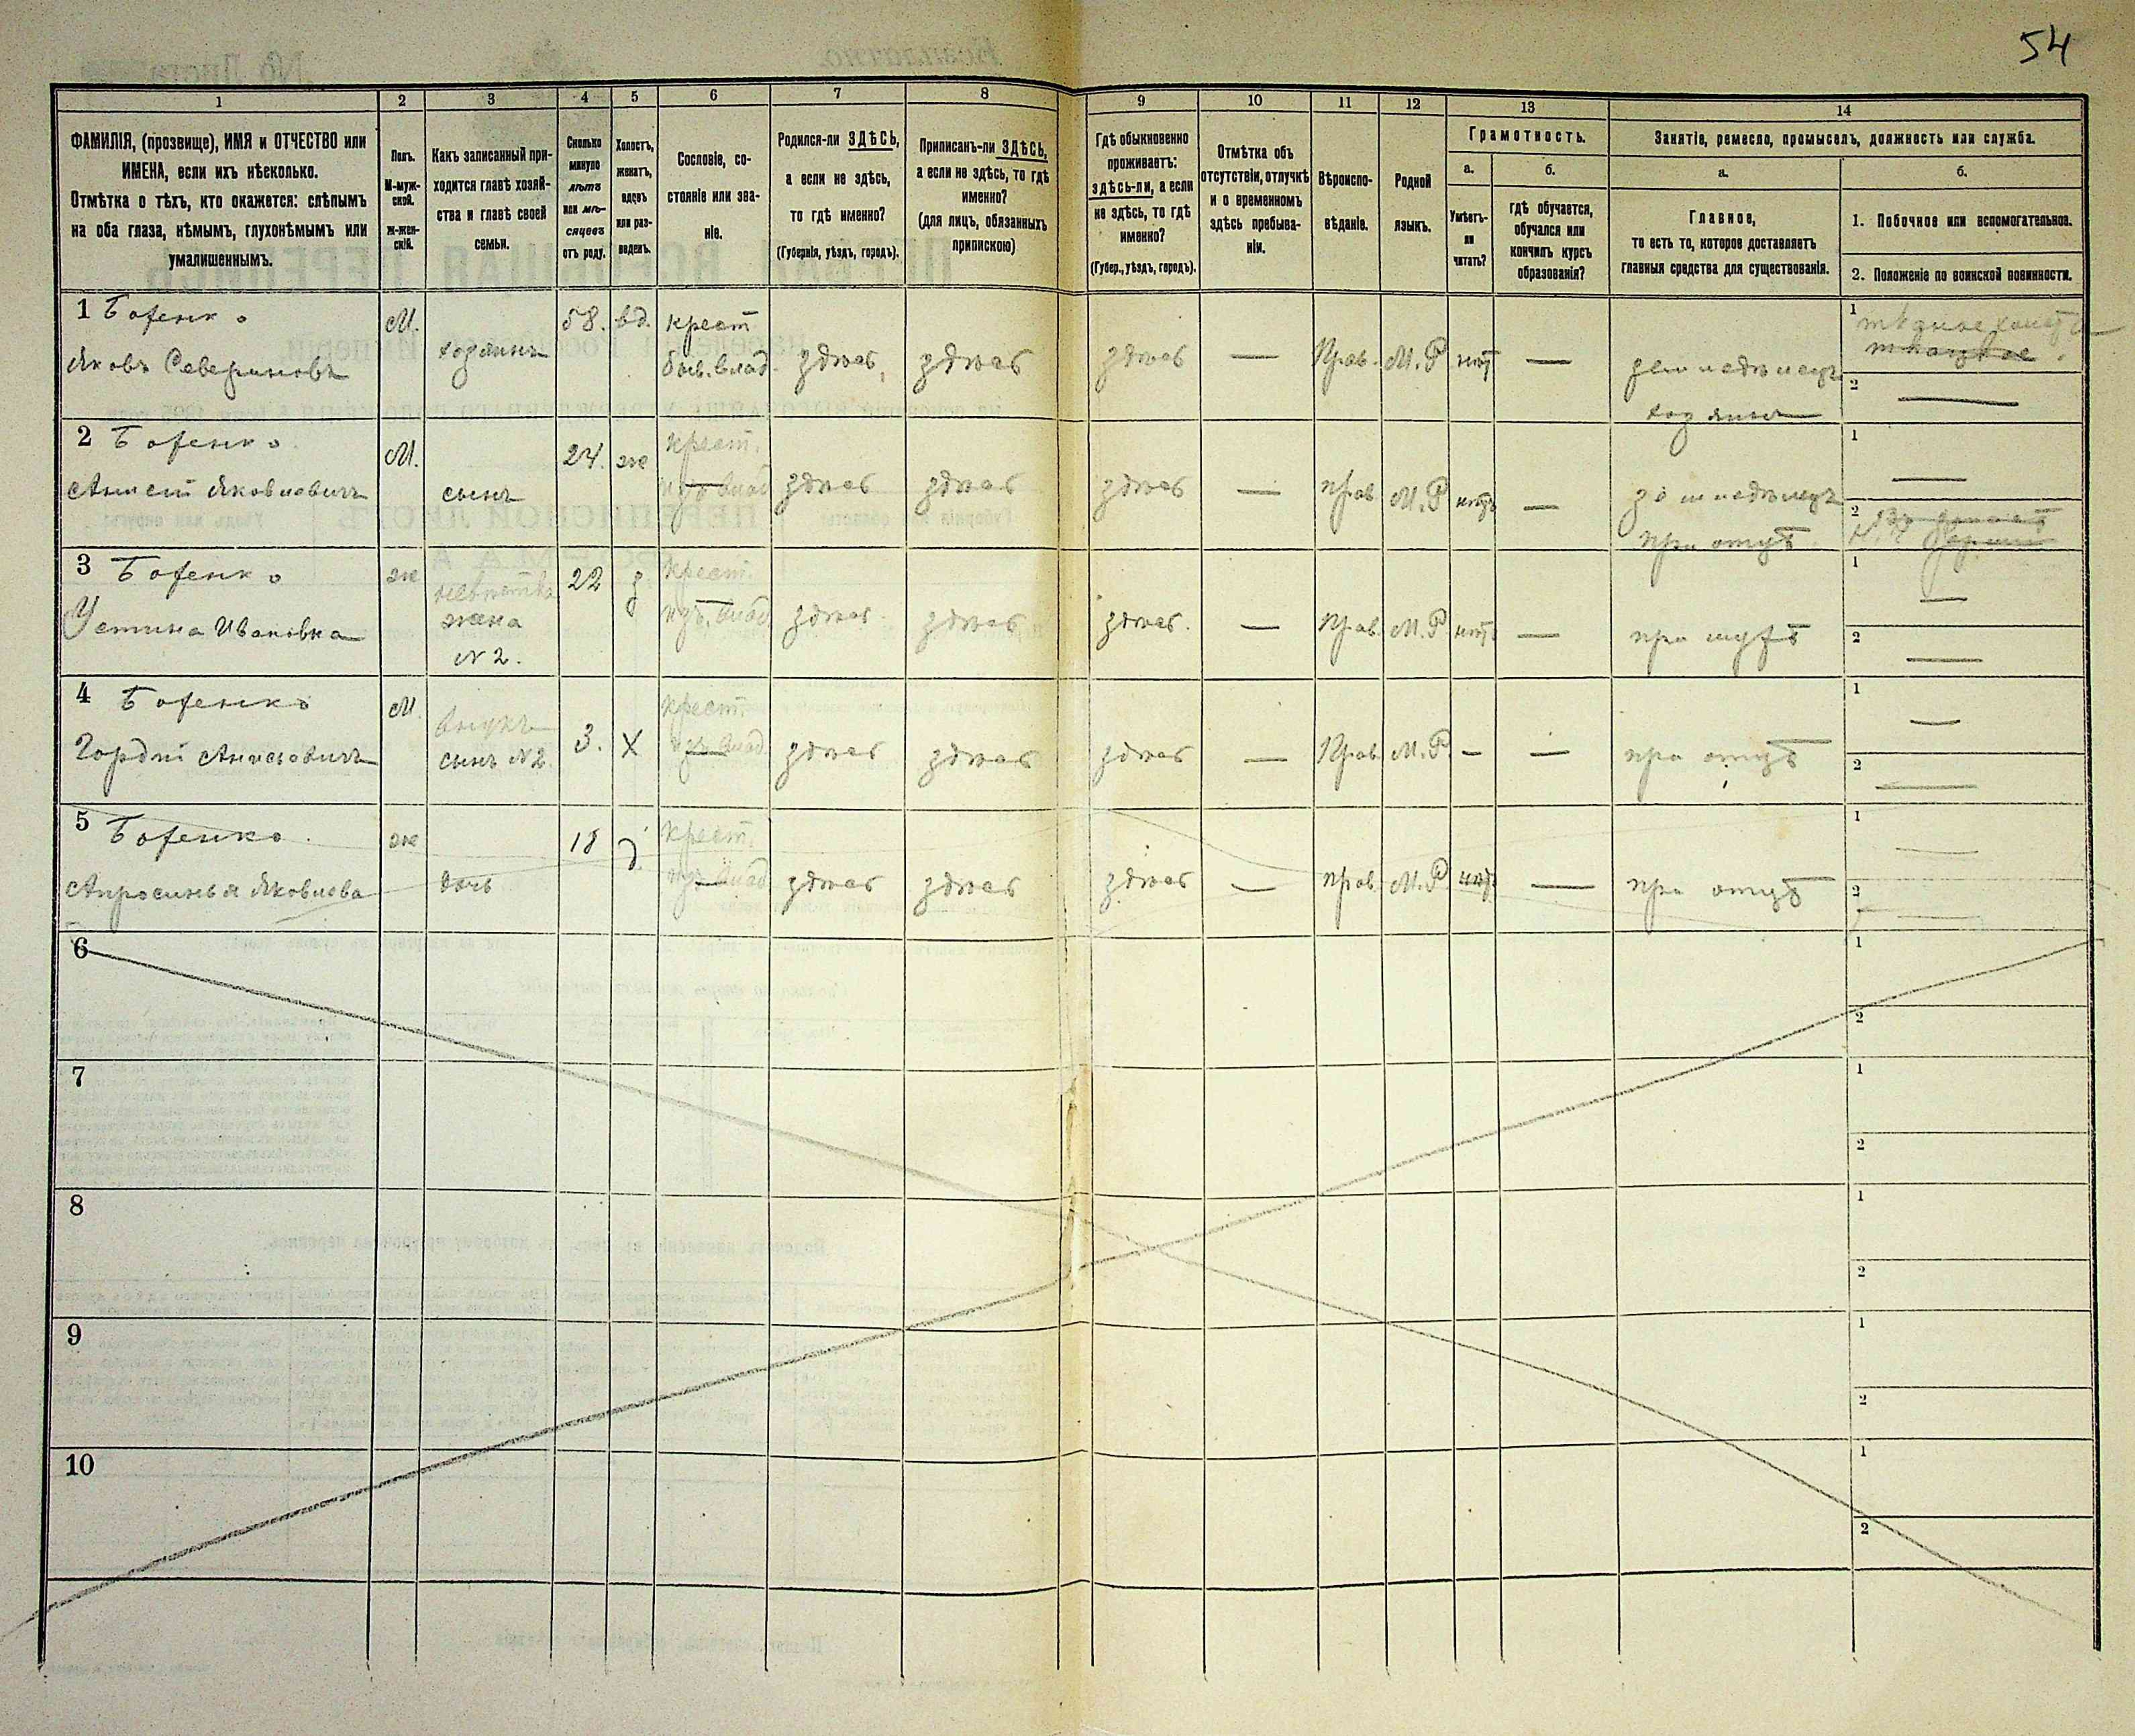 54
1 2 3 4 5 6 7 8 9 10 11 12 13 14
ФАМИЛІЯ, (прозвище), ИМЯ и ОТЧЕСТВО или
ИМЕНА, если ихъ нѣсколько.
Отмѣтка о тѣхъ, кто окажется: слѣпымъ
на оба глаза, нѣмымъ, глухонѣмымъ или
умалишеннымъ.
Полъ.
М-муж-
ской.
Ж-жен-
скій.
Какъ записанный при-
ходится главѣ хозяй-
ства и главѣ своей
семьи.
Сколько
минуло
лѣтъ
или мѣ-
сяцевъ
отъ роду.
Холостъ,
женатъ,
вдовъ
или раз-
веденъ.
Сословіе, со-
стояніе или зва-
ніе.
Родился-ли ЗДѢСЬ,
а если не здѣсь,
то гдѣ именно?
(Губернія, уѣздъ, городъ).
Приписанъ-ли ЗДѢСЬ,
а если не здѣсь, то гдѣ
именно?
(для лицъ, обязанныхъ
припискою)
Гдѣ обыкновенно
проживаетъ:
здѣсь-ли, а если
не здѣсь, то гдѣ
именно?
(Губер., уѣздъ, городъ).
Отмѣтка объ
отсутствіи, отлучкѣ
и о временномъ
здѣсь пребыва-
ніи.
Вѣроиспо-
вѣданіе.
Родной
языкъ.
Грамотность.
а.
Умѣетъ-
ли
читать?
б.
гдѣ обучается,
обучался или
кончилъ курсъ
образованія?
Занятіе, ремесло, промыселъ, должность или служба.
а.
Главное,
то есть то, которое доставляетъ
главныя средства для существованія.
б.
1. Побочное или вспомогательное.
2. Положеніе по воинской повинности.
1 Боженко М. 58. вд. крест 1
Яковъ Севериновъ хозяинъ быв. влад. здѣсь здѣсь здѣсь — Прав. М.Р нѣт — земледѣлецъ
хозяинъ 2 —
2 Боженко М. 24. ж крест. 1 —
Яковлевичъ сынъ влад здѣсь здѣсь здѣсь — прав М.Р нѣтъ — земледѣлецъ
при отцѣ 2
3 Боженко ж невѣстка 22 з крест. 1 —
Устина Ивановна жена влад здѣсь здѣсь здѣсь. — Прав. М.Р нѣт — при мужѣ 2 —
N 2.
4 Боженко М внукъ 3. Х крест. 1 —
Гордѣй сынъ N2. влад здѣсь здѣсь здѣсь — Прав М.Р — — при отцѣ 2 —
5 Боженко ж 18 д крест. 1 —
Апросинья Яковлева дочь влад здѣсь здѣсь здѣсь — прав. М.Р нѣт — при отцѣ 2 —
6 1
2
7 1
2
8 1
2
9 1
2
10 1
2